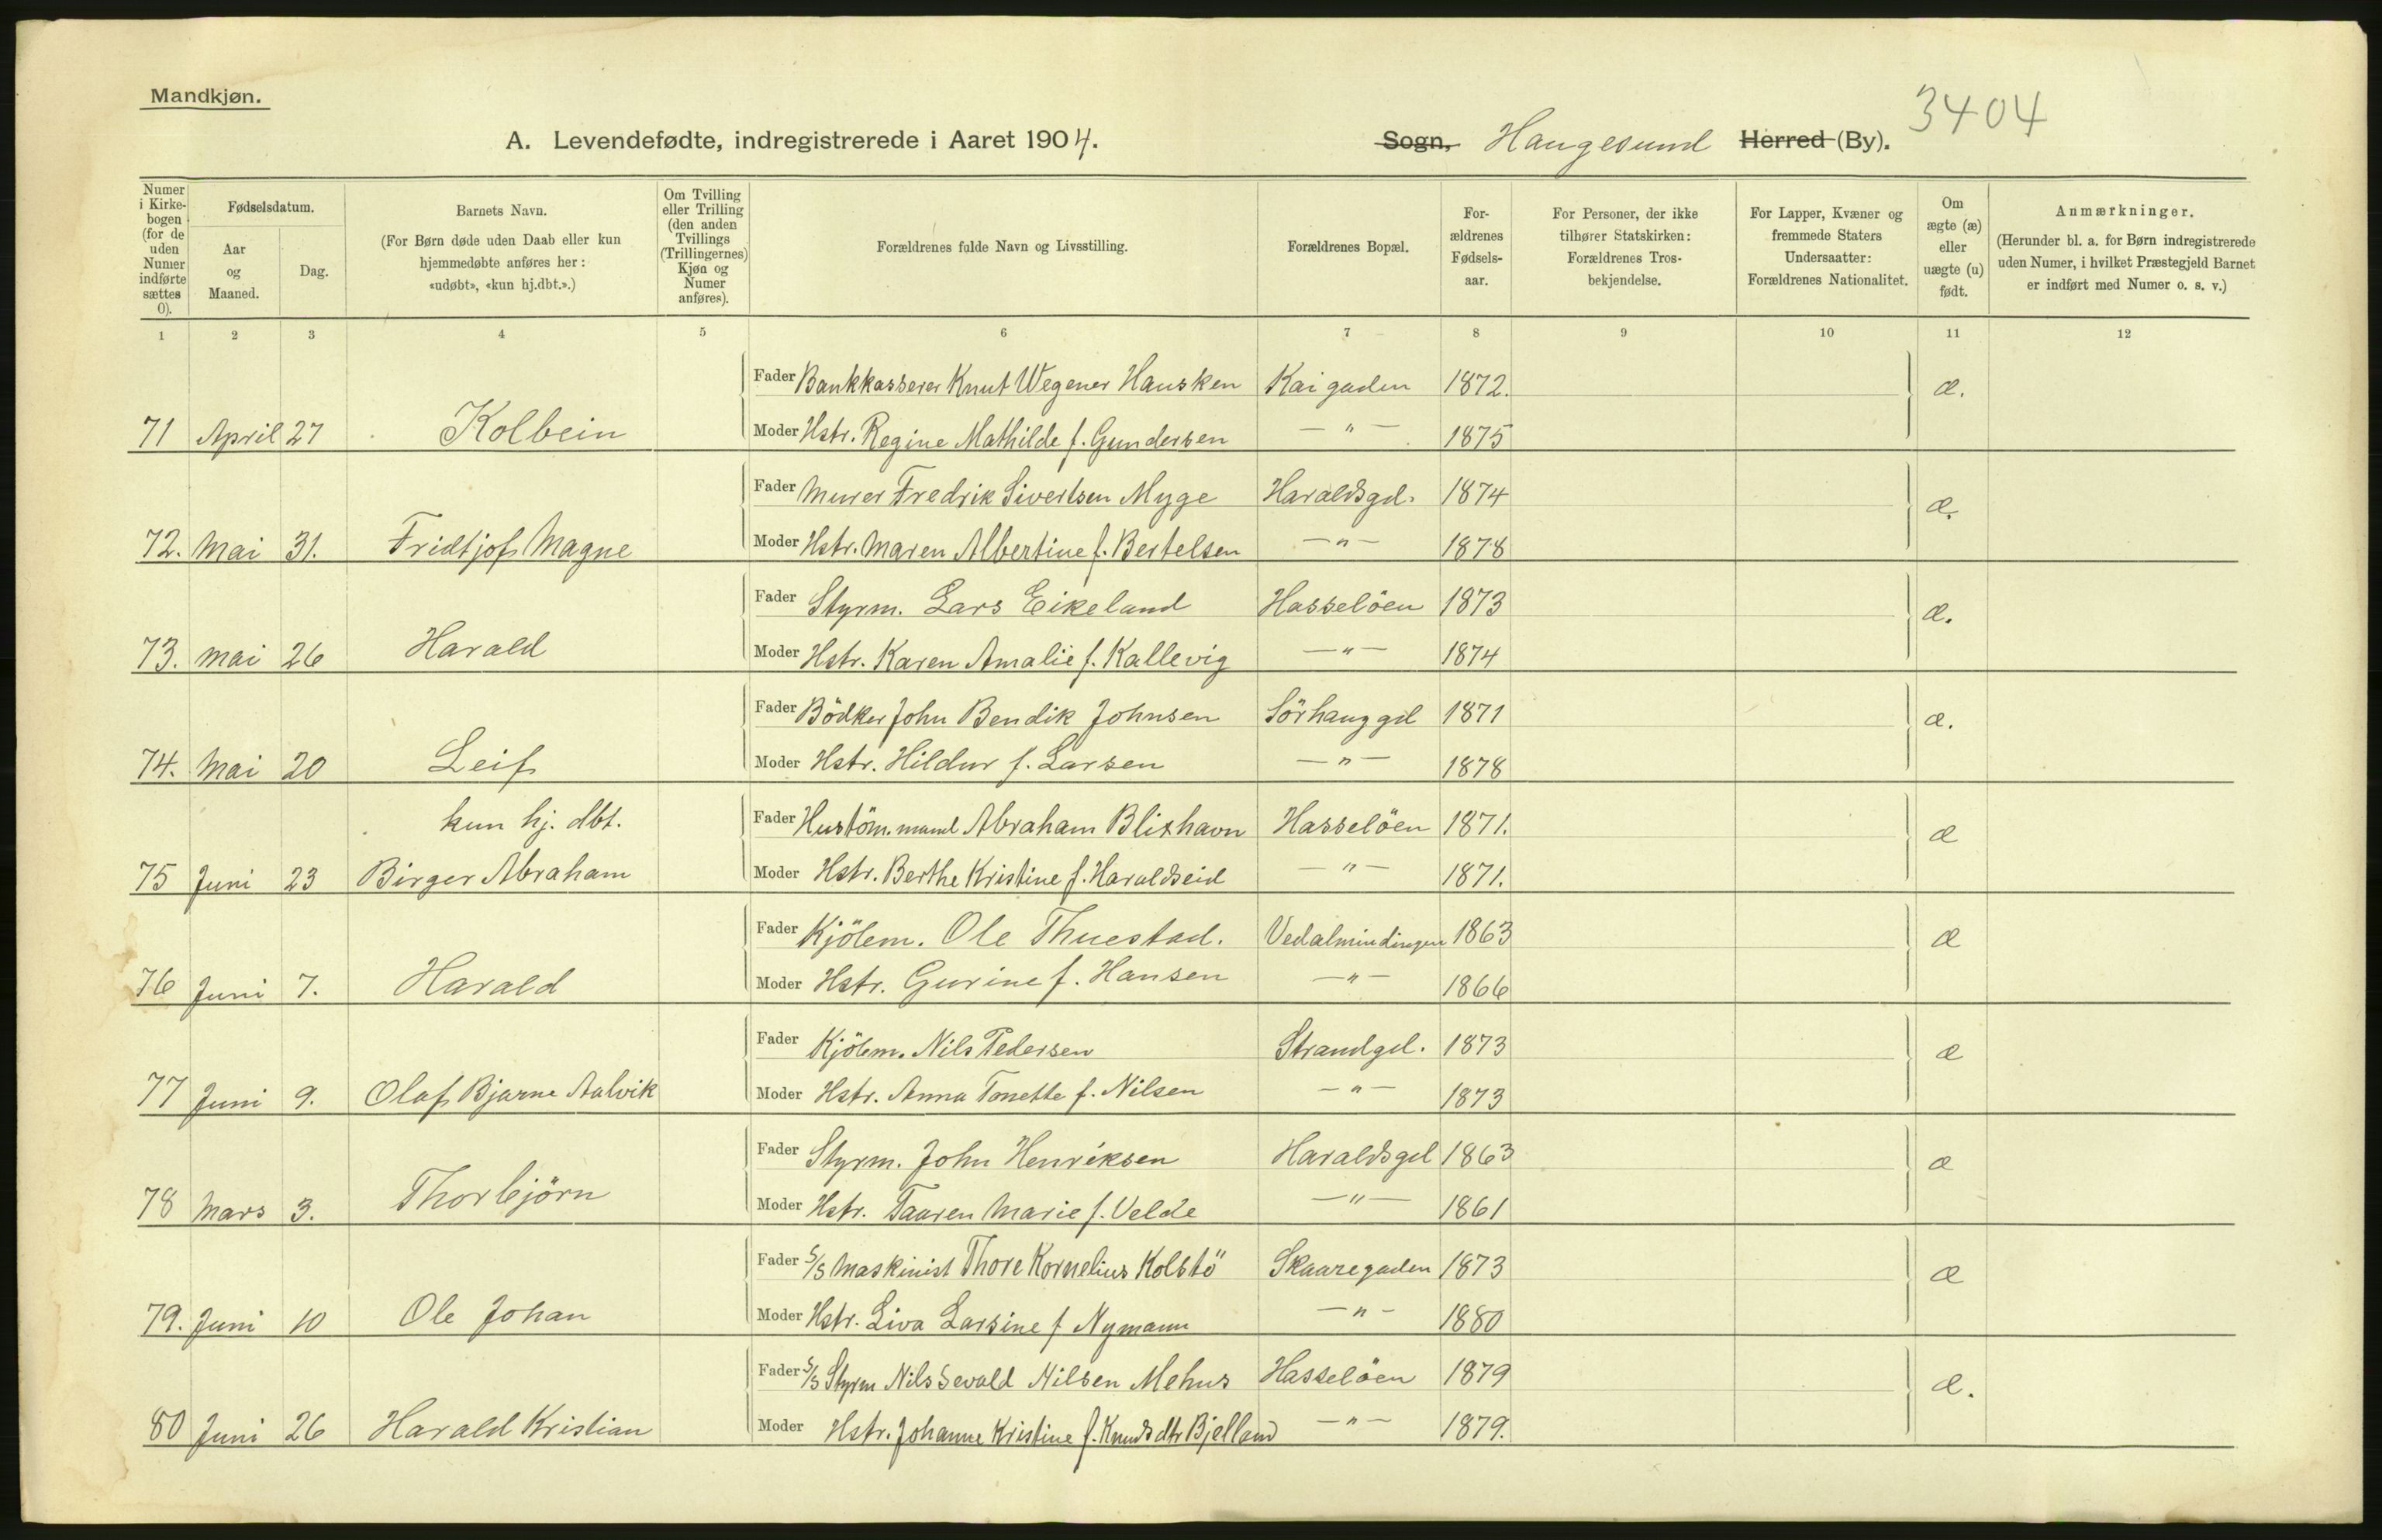 Mandkjøn.
3404
A. Levendefødte, indregistrerede i Aaret 1904. Sogn, Haugesund Herred (By).
Numer i Kirkebogen (for de uden Numer indførte sættes 0).
Fødselsdatum.
Aar og Maaned.
Dag.
Barnets Navn.
(For Børn døde uden Daab eller kun hjemmedøbte anføres her: «udøbt», «kun hj.dbt.».)
Om Tvilling eller Trilling (den anden Tvillings (Trillingernes) Kjøn og Numer anføres).
Forældrenes fulde Navn og Livsstilling.
Forældrenes Bopæl.
Forældrenes Fødselsaar.
For Personer, der ikke tilhører Statskirken: Forældrenes Trosbekjendelse.
For Lapper, Kvæner og fremmede Staters Undersaatter: Forældrenes Nationalitet.
Om ægte (æ) eller uægte (u) født.
Anmærkninger.
(Herunder bl. a. for Børn indregistrerede uden Numer, i hvilket Præstegjeld Barnet er indført med Numer o. s. v.)
1 2 3 4 5 6 7 8 9 10 11 12
Fader Bankkasserer Knut Wegener Hausken Kaigaden 1872. æ.
71 April 27 Kolbein Moder Hstr. Regine Mathilde f. Gundersen — " — 1875
Fader Murer Fredrik Sivertsen Myge Haraldsgd. 1874 æ.
72. Mai 31. Fridtjof Magne Moder Hstr. Maren Albertine f. Bertelsen — " — 1878
Fader Styrm. Lars Eikeland Hasselöen 1873 æ.
73. Mai 26 Harald Moder Hstr. Karen Amalie f. Kallevig — " — 1874
Fader Bödker John Bendik Johnsen Sörhauggd 1871 æ.
74. Mai 20 Leif Moder Hstr. Hildur f. Larsen — " — 1878
kun hj. dbt. Fader Hustöm.mand Abraham Blixhavn Hasselöen 1871. æ
75 Juni 23 Birger Abraham Moder Hstr. Berthe Kristine f. Haraldseid — " — 1871.
Fader Kjöbm. Ole Thuestad. Vedalmindingen 1863 æ
76 Juni 7. Harald Moder Hstr. Gurine f. Hansen — " — 1866
Fader Kjöbm. Nils Pedersen Strandgd. 1873 æ
77 Juni 9. Olaf Bjarne Aalvik Moder Hstr. Anna Tonette f. Nilsen — " — 1873
Fader Styrm. John Henriksen Haraldsgd 1863 æ
78 Mars 3. Thorbjörn Moder Hstr. Taaren Marie f. Velde — " — 1861
Fader S/S Maskinist Thore Kornelius Kolstö Skaaregaden 1873 æ
79. Juni 10 Ole Johan Moder Hstr. Liva Larsine f Nymann — " — 1880
Fader S/S Styrm Nils Sevald Nilsen Mehus Hasselöen 1879 æ.
80 Juni 26 Harald Kristian Moder Hstr. Johanne Kristine f. Knudsdtr Bjelland — " — 1879.